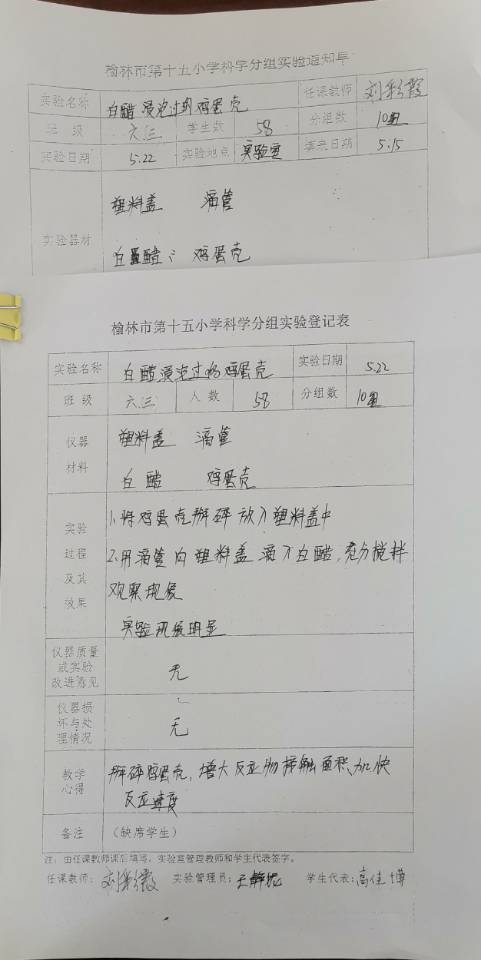 榆林市第十五小学科学分组实验通知单
实验名称 白醋浸泡过的鸡蛋壳 任课教师 刘彩霞
班 级 六三 学生数 58 分组数 10组
实验日期 5.22 实验地点 实验室 填表日期 5.15
塑料盖 滴管
实验器材
白醋 鸡蛋壳
榆林市第十五小学科学分组实验登记表
实验名称 白醋浸泡过的鸡蛋壳 实验日期 5.22
班 级 六三 人 数 58 分组数 10组
仪器 塑料盖 滴管
材料 白醋 鸡蛋壳
实验 1.将鸡蛋壳掰碎放入塑料盖中
过程 2.用滴管向塑料盖滴入白醋,充分搅拌
及其 观察现象
效果 实验现象明显
仪器质量
或实验
改进意见 无
仪器损
坏与处
理情况 无
教学 掰碎鸡蛋壳,增大反应物接触面积,加快
心得 反应速度
备注 (缺席学生)
注:由任课教师课后填写,实验室管理教师和学生代表签字。
任课教师:刘彩霞 实验管理员:王 学生代表:高佳博